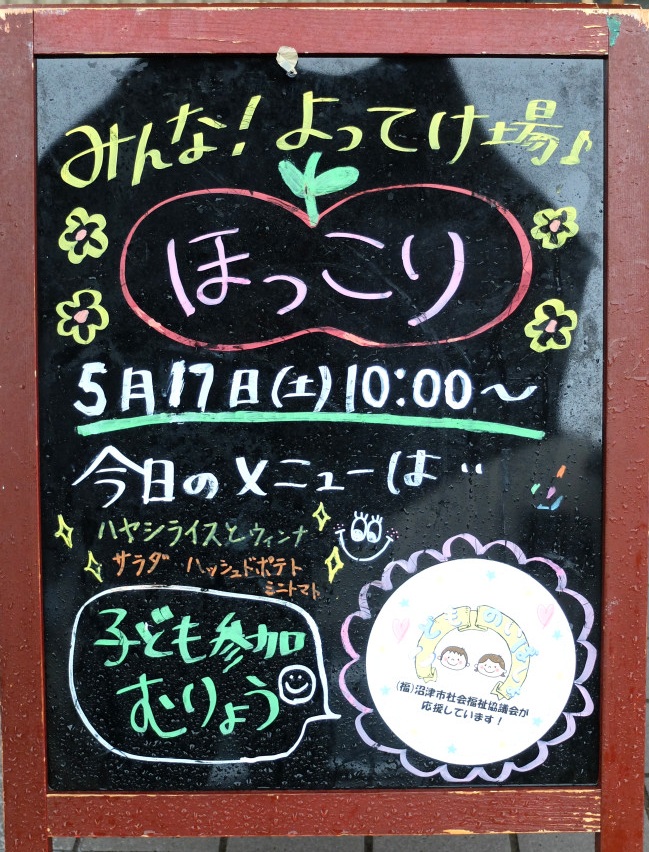 みんな!よってけ場♪
ほっこり
5月17日(土)10:00〜
今日のメニューは‥
ハヤシライスとウィンナ
サラダ ハッシュドポテト
ミニトマト
子ども参加
むりょう
こども のいばしょ
(福)沼津市社会福祉協議会が
応援しています!